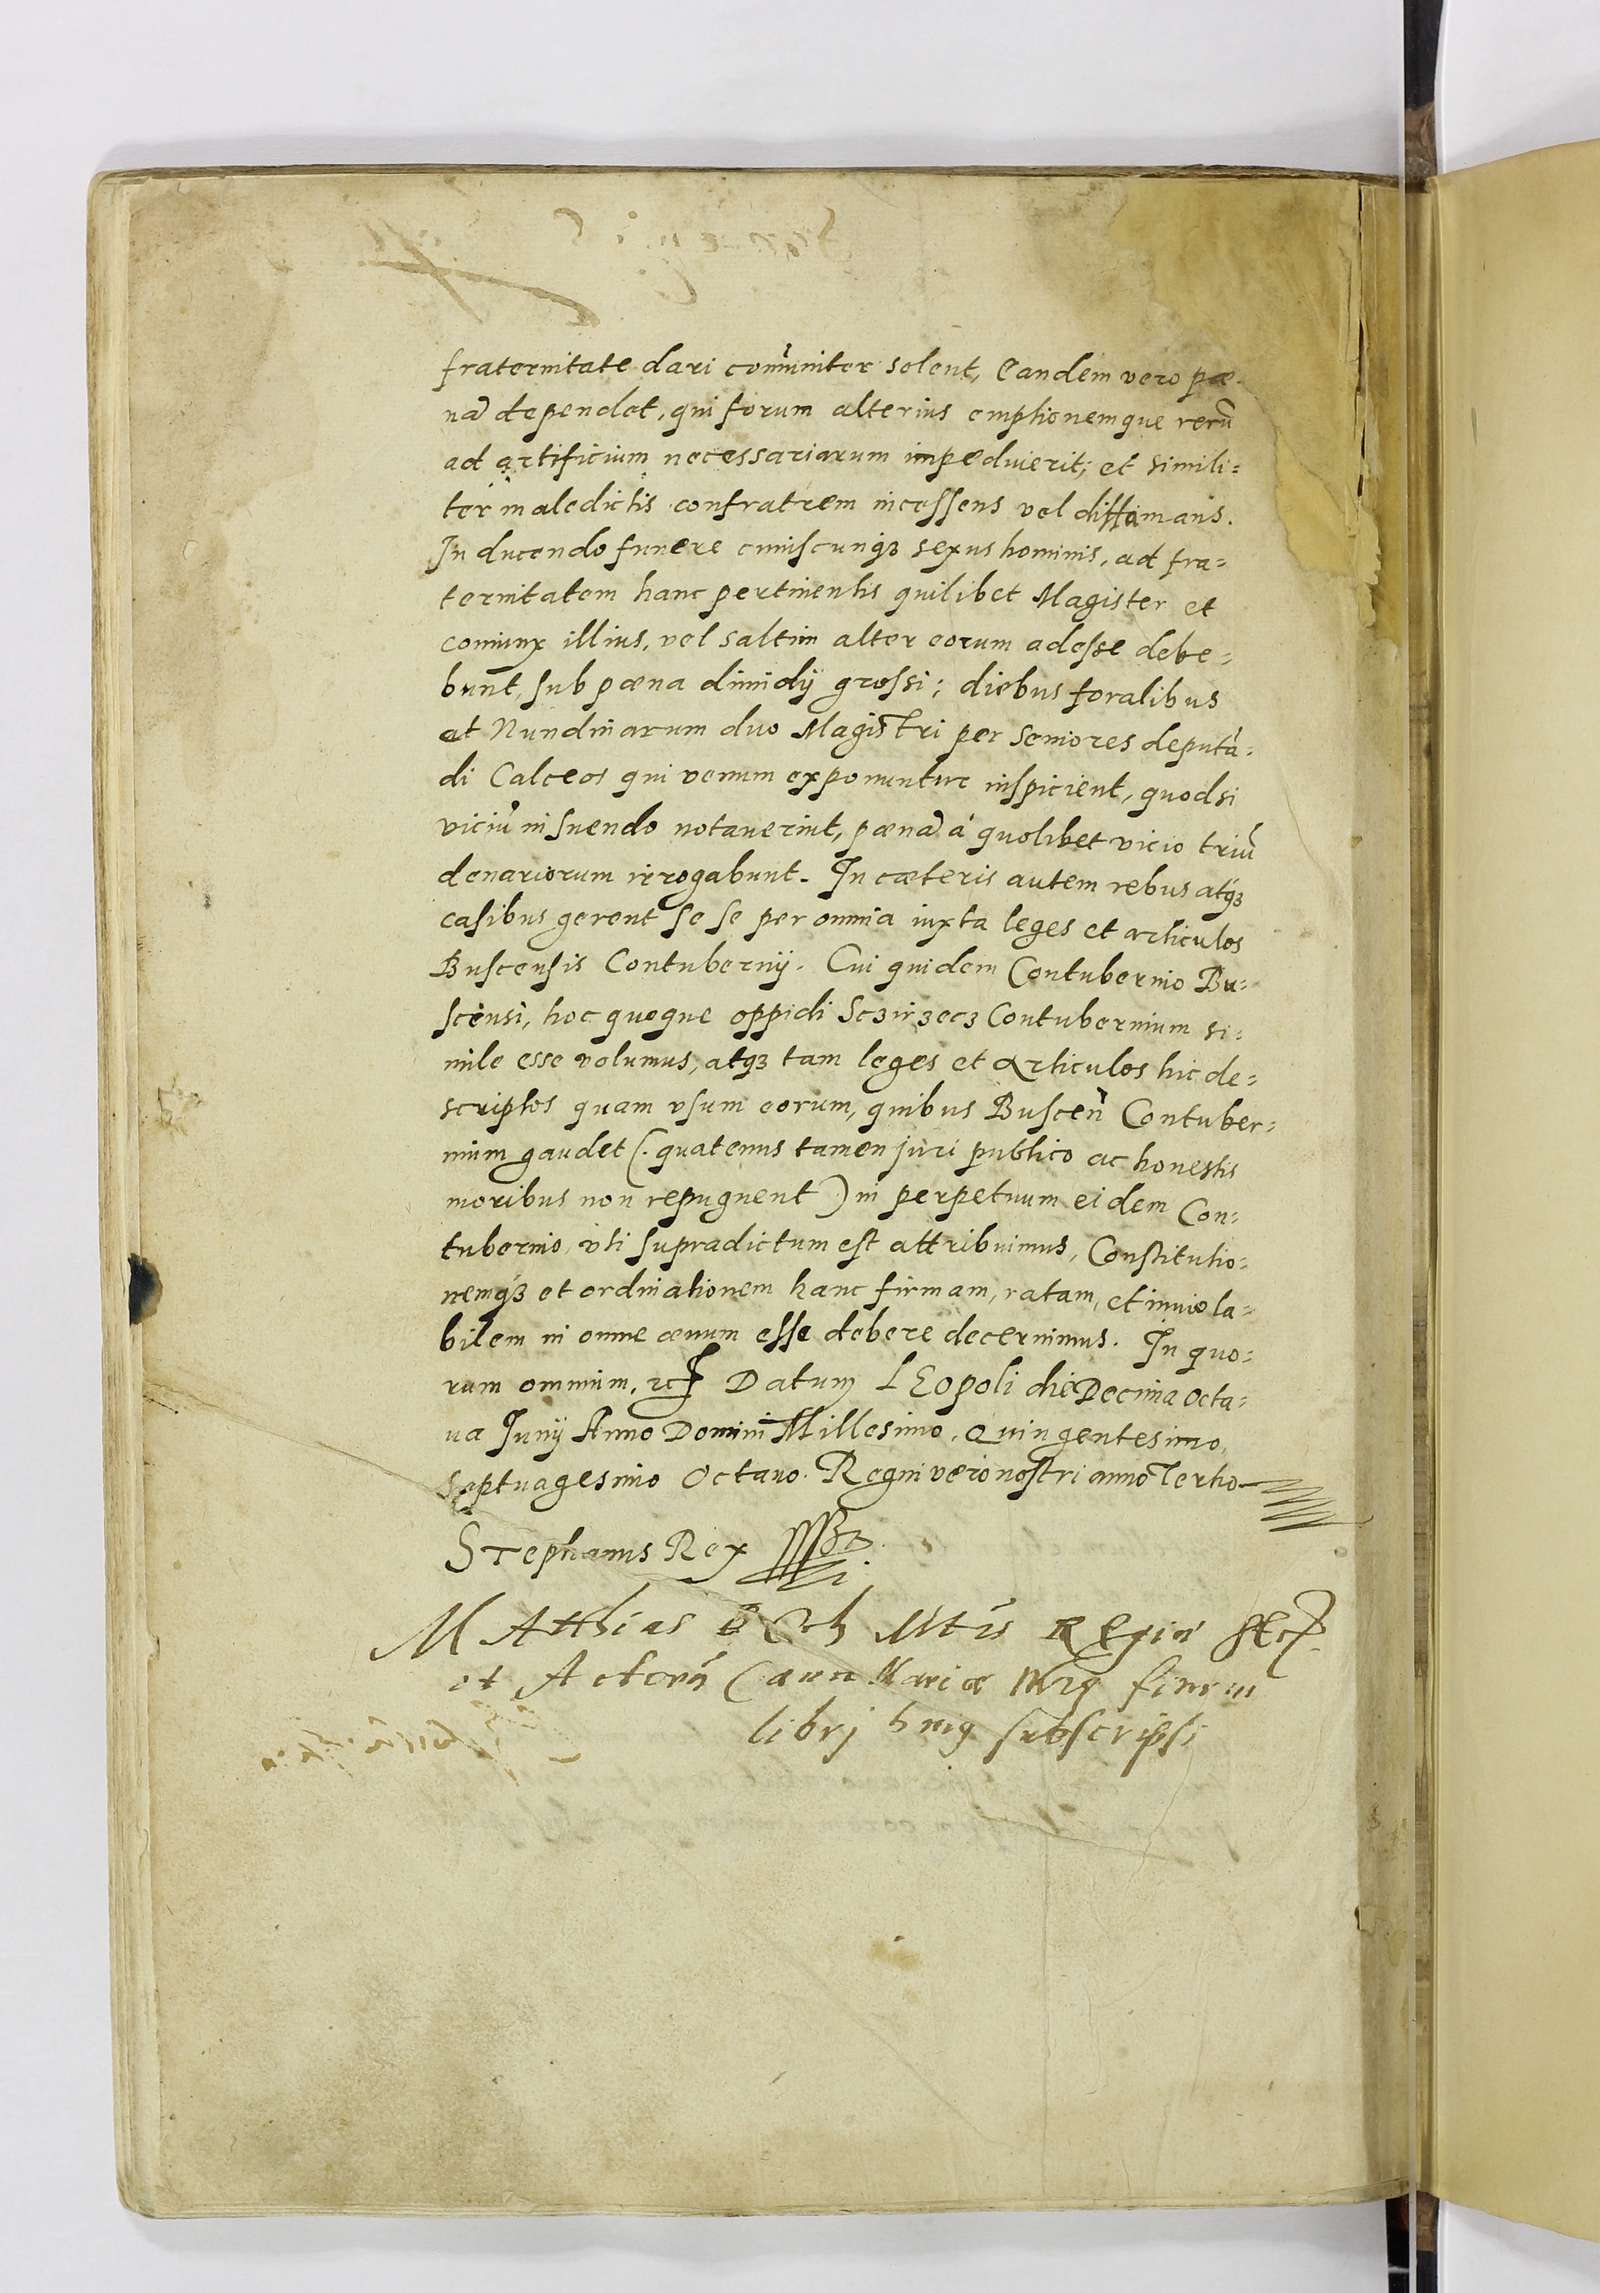 fraternitate dari comuniter solent, Eandem vero pœ-
nã dependet, qui forum alterius emptionemque rerũ
ad artificium necessariarum impedvierit; et simili=
ter maledictis confratrem incessens vel diffamans.
In ducendo funere cuiuscunqꝫ sexus hominis, ad fra=
ternitatem hanc pertinentis quilibet Magister et
coniunx illius, vel saltim alter eorum adesse debe=
bunt, sub pœna dimidij grossi; diebus foralibus
et Nundinarum duo Magistri per Seniores deputã=
di Calceos qui venum exponuntur inspicient, quodsi
viciũ in suendo notaverint, pœnã à quolibet vicio triũ
denariorum irrogabunt. In cæteris autem rebus atqꝫ
casibus gerent se se per omnia iuxta leges et articulos
Buscensis Contubernij. Cui quidem Contubernio Bu=
scensi, hoc quoque oppidi Sczirzecz Contubernium si=
mile esse volumus, atqꝫ tam leges et Articulos hic de=
scriptos quam vsum eorum, quibus Buscen̄ Contuber=
nium gaudet (. quatenus tamen juri publico ac honestis
moribus non repugnent ) in perpetuum eidem Con=
tubernio, vti supradictum est attribuimus, Constitutio=
nemqꝫ et ordinationem hanc firmam, ratam, et inviola=
bilem in omne ævum esse debere decernimus. In quo=
rum omnium, ꝛc Datum LEopoli die Decima Octa=
va Junij Anno Domini Millesimo, Quingentesimo,
Septuagesimo Octavo. Regni vero nostri anno Tertio
Stephanus Rex
MAtthias Mtis REgiæ
et Actorũ finem
librj huiꝰ subscripsi